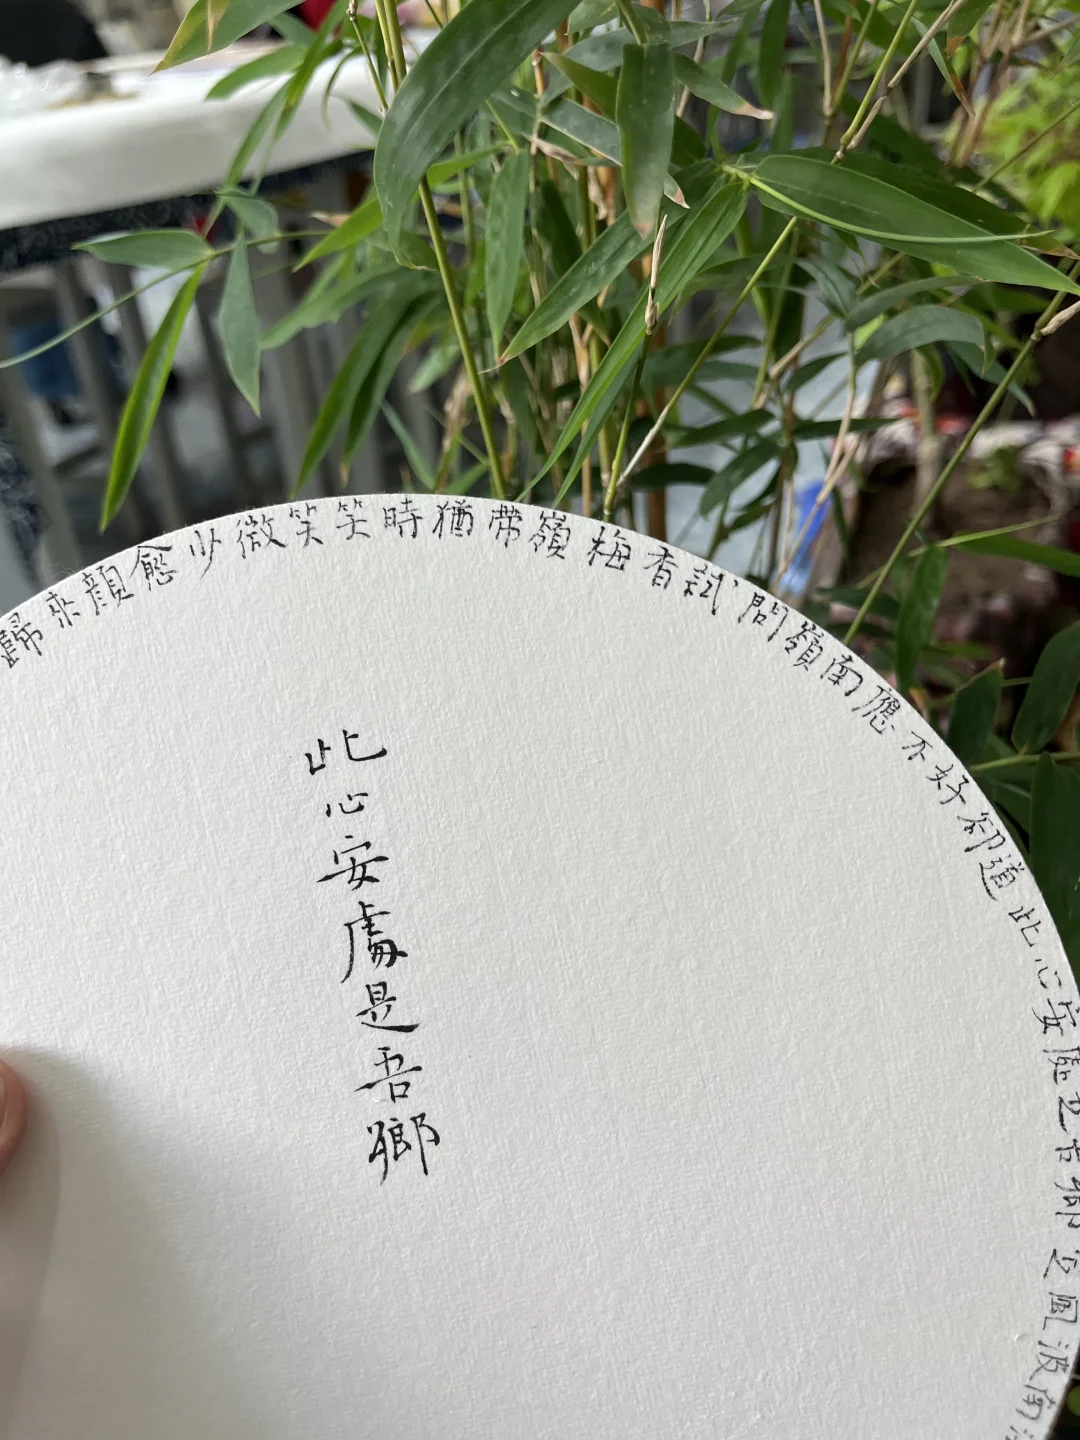 此心安處是吾鄉
歸來顔愈少微笑笑時猶带嶺梅香試問嶺南應不好卻道此心安處是吾鄉定風波南